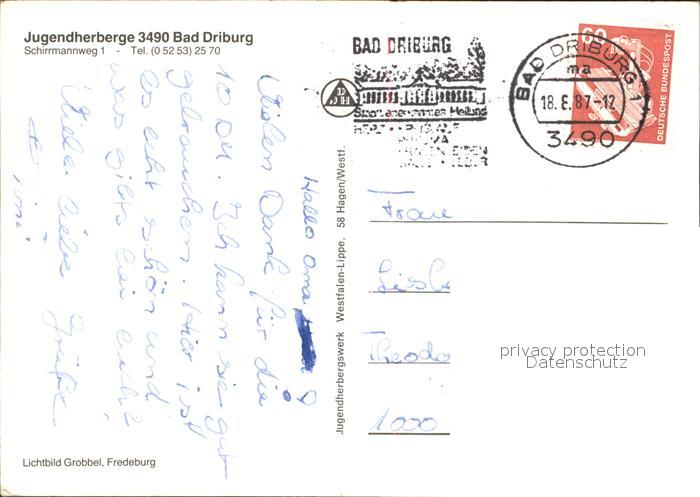 Jugendherberge 3490 Bad Driburg
Schirrmannweg 1 - Tel. (0 52 53) 25 70
BAD DRIBURG
DJH
Staatl. anerkanntes Heilbad
HERZ
BAD DRIBURG 1
ma
18.6.87-12
3490
60
DEUTSCHE BUNDESPOST
Hallo Oma
Vielen Dank für die
10 DM. Ich kann sie gut
gebrauchen. Hier ist
es echt schön und
was gibts bei euch?
Viele liebe Grüße
Jugendherbergswerk Westfalen-Lippe, 58 Hagen/Westf.
Frau
Theodo
1000
privacy protection
Datenschutz
Lichtbild Grobbel, Fredeburg